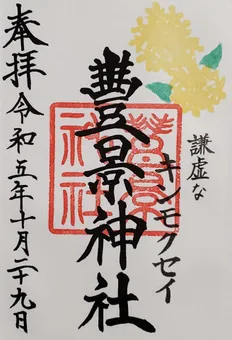 謙虚な
キンモクセイ
豊景神社
奉拝 令和五年十月二十九日
豊景神社